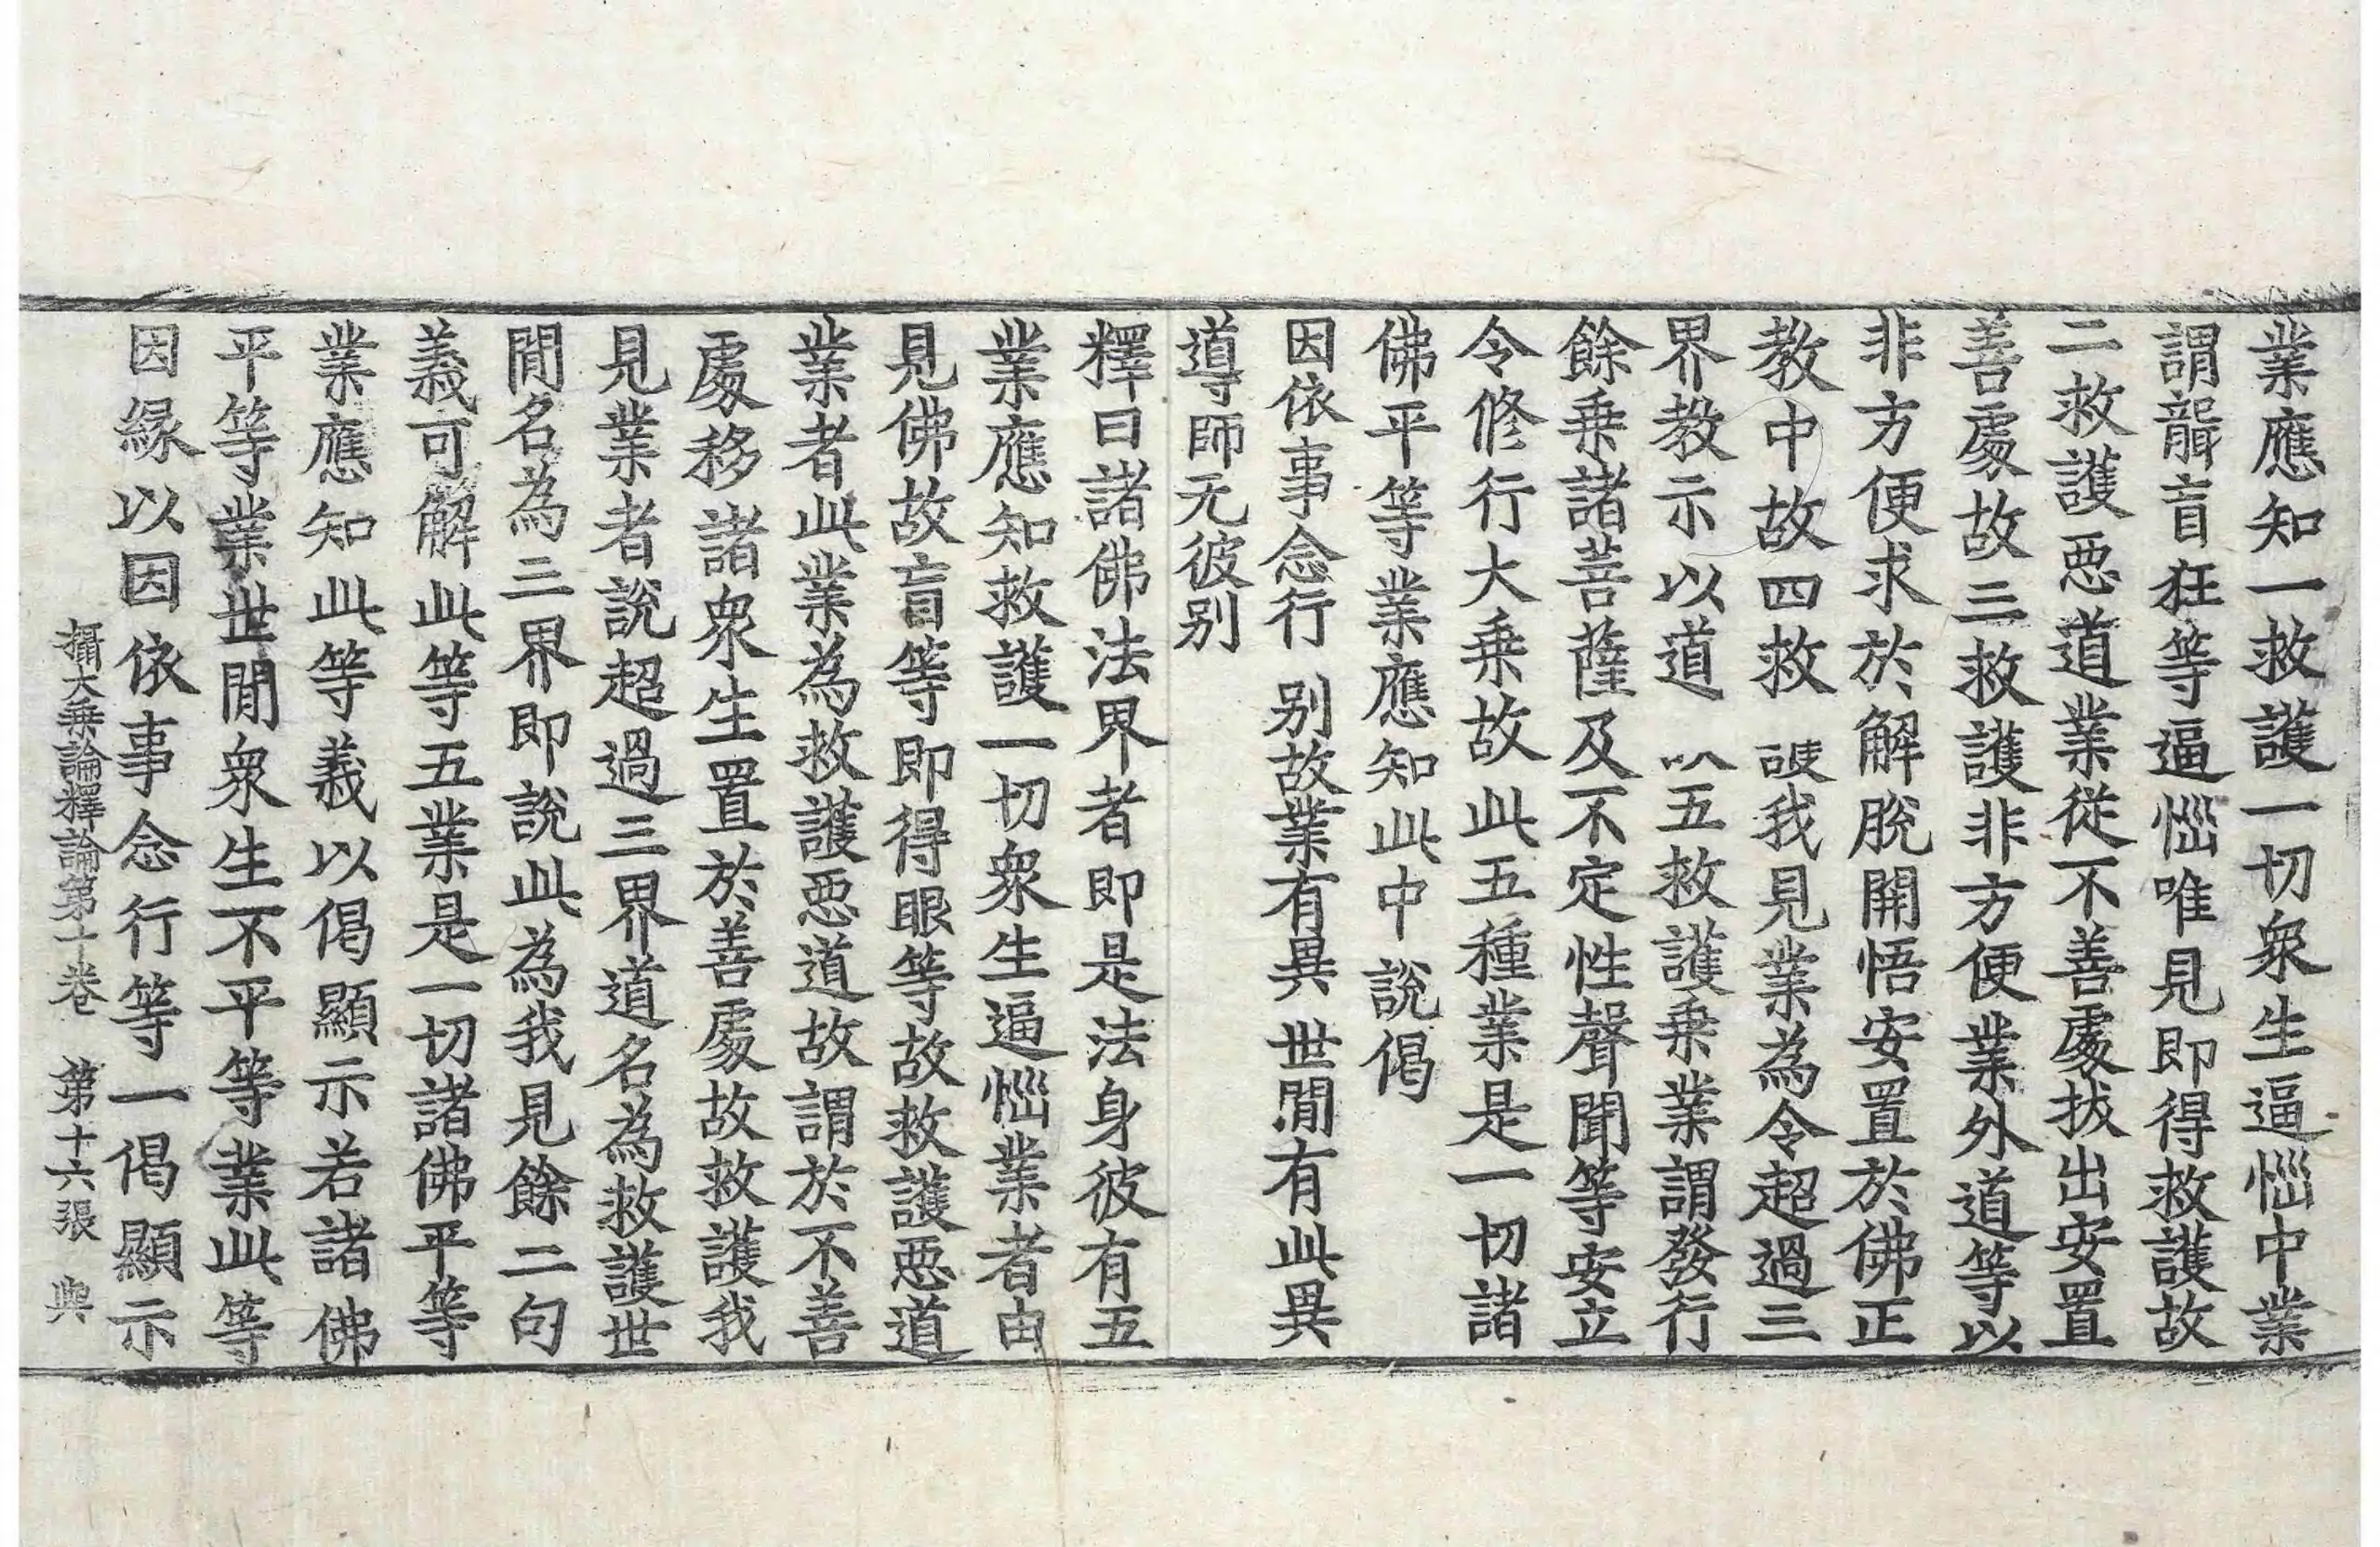 業應知一救護一切衆生逼惱中業
謂聾盲狂等逼惱唯見即得救護故
二救護惡道業從不善處拔出安置
善處故三救護非方便業外道等以
非方便求於解脫開悟安置於佛正
教中故四救 我見業為令超過三
界教示以道 五救護乗業謂發行
餘乗諸菩薩及不定性聲聞等安立
令修行大乗故此五種業是一切諸
佛平等業應知此中說偈
因依事念行 别故業有異 世閒有此異
導師无彼别
釋曰諸佛法界者即是法身彼有五
業應知救護一切衆生逼惱業者由
見佛故盲等即得眼等故救護惡道
業者此業為救護惡道故謂於不善
處移諸衆生置於善處故故救護我
見業者說超過三界道名為救護世
閒名為三界即說此為我見餘二句
義可解此等五業是一切諸佛平等
業應知此等義以偈顯示若諸佛
平等業世閒衆生不平等業此等
因緣以因依事念行等一偈顯示
攝大乗論釋論第十卷 第十六張 興